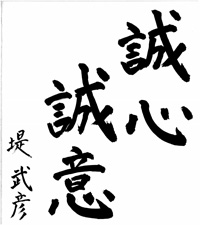 誠心
誠意
堤武彦